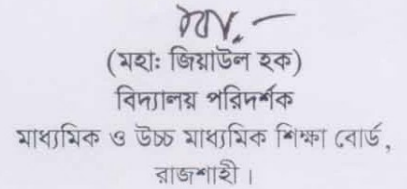 (মহাঃ জিয়াউল হক)
বিদ্যালয় পরিদর্শক
মাধ্যমিক ও উচ্চ মাধ্যমিক শিক্ষা বোর্ড,
রাজশাহী।